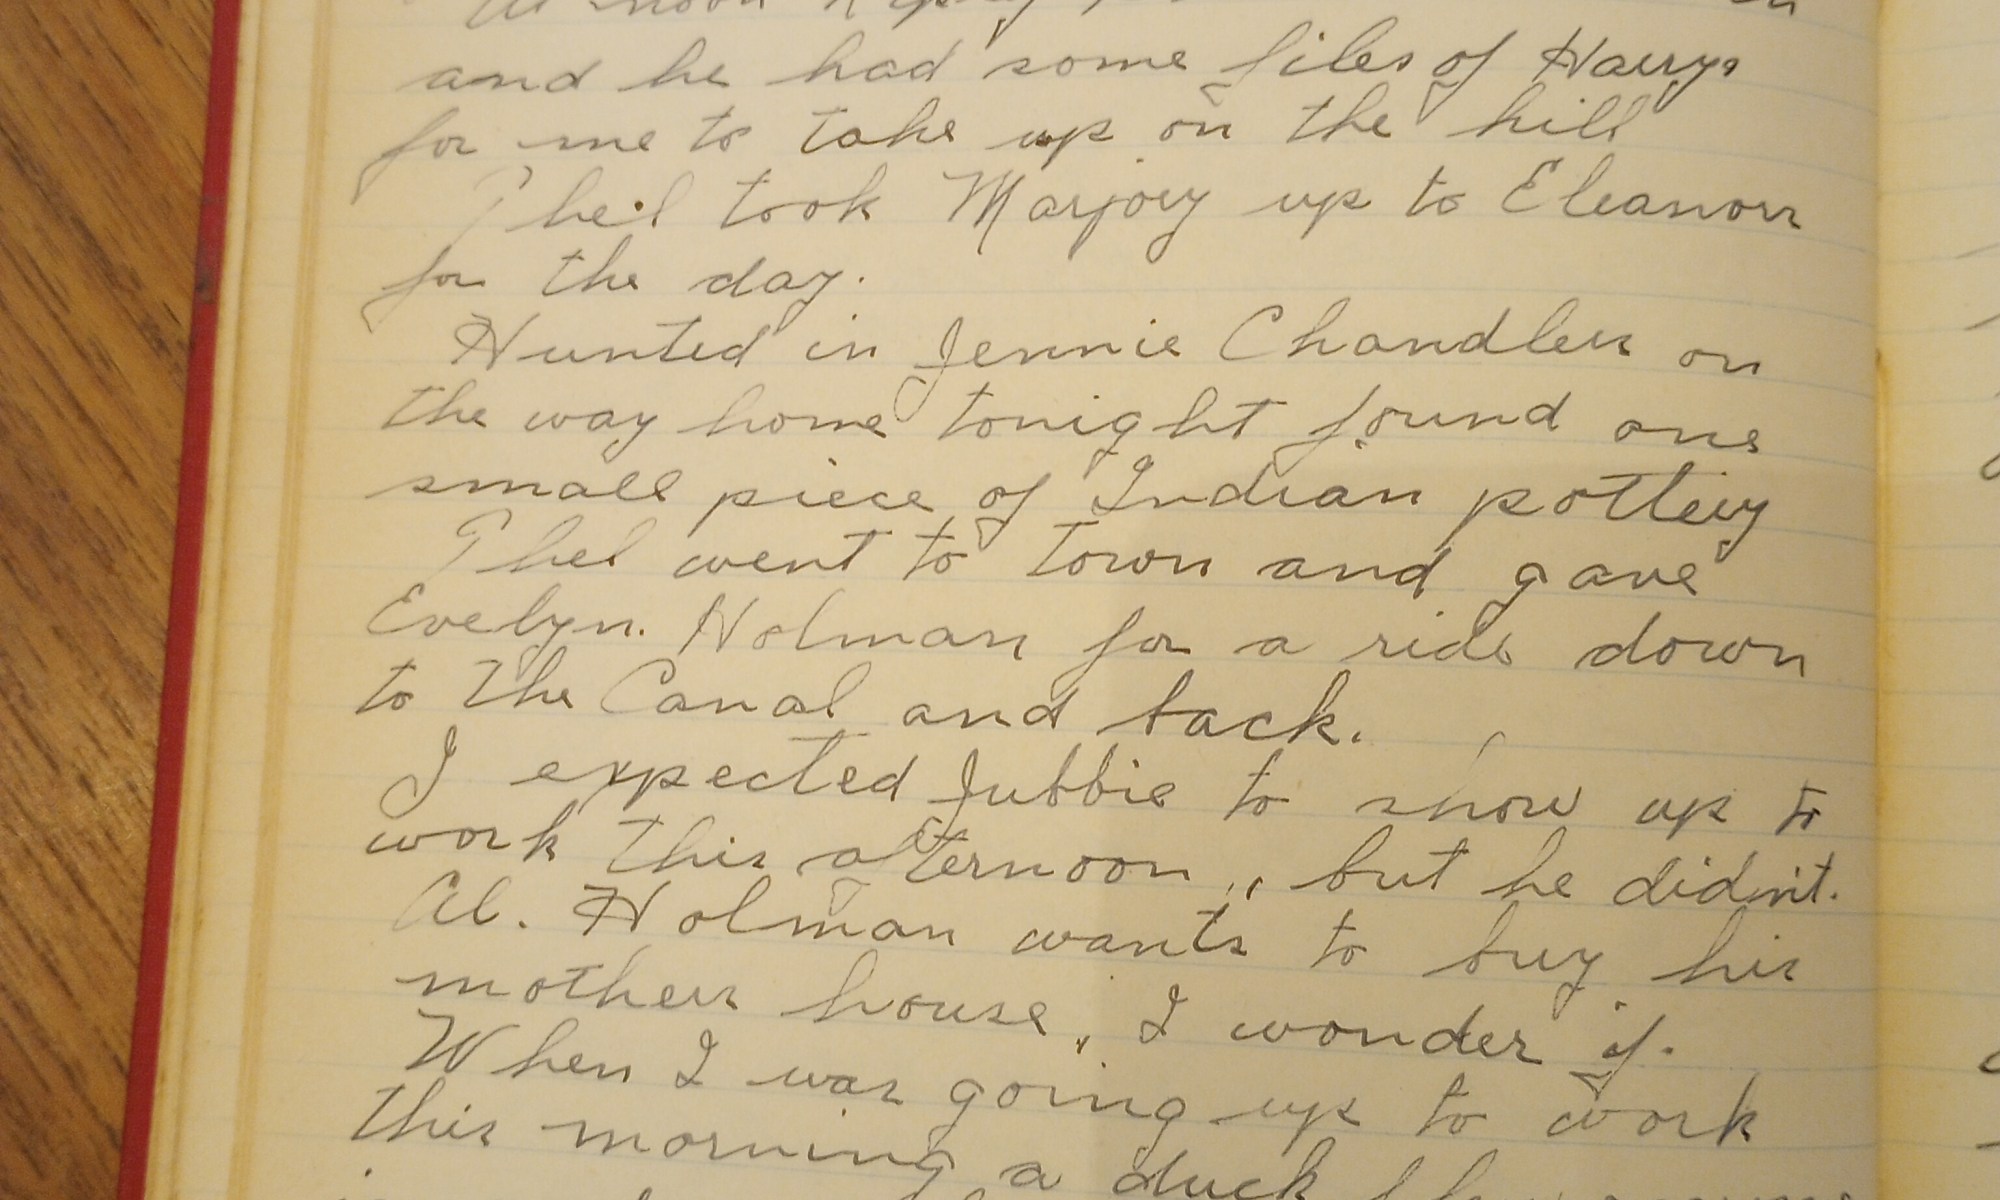 At noon
and he had some files of Harrys
for me to take up on the hill
Phel took Marjory up to Eleanors
for the day.
Hunted in Jennie Chandlers on
the way home tonight found one
small piece of Indian pottery
Phel went to town and gave
Evelyn. Holman for a ride down
to the Canal and back.
I expected Jubbie to show up to
work this afternoon, but he didn't.
Al. Holman wants to buy his
mothers house, I wonder if.
When I was going up to work
this morning a duck